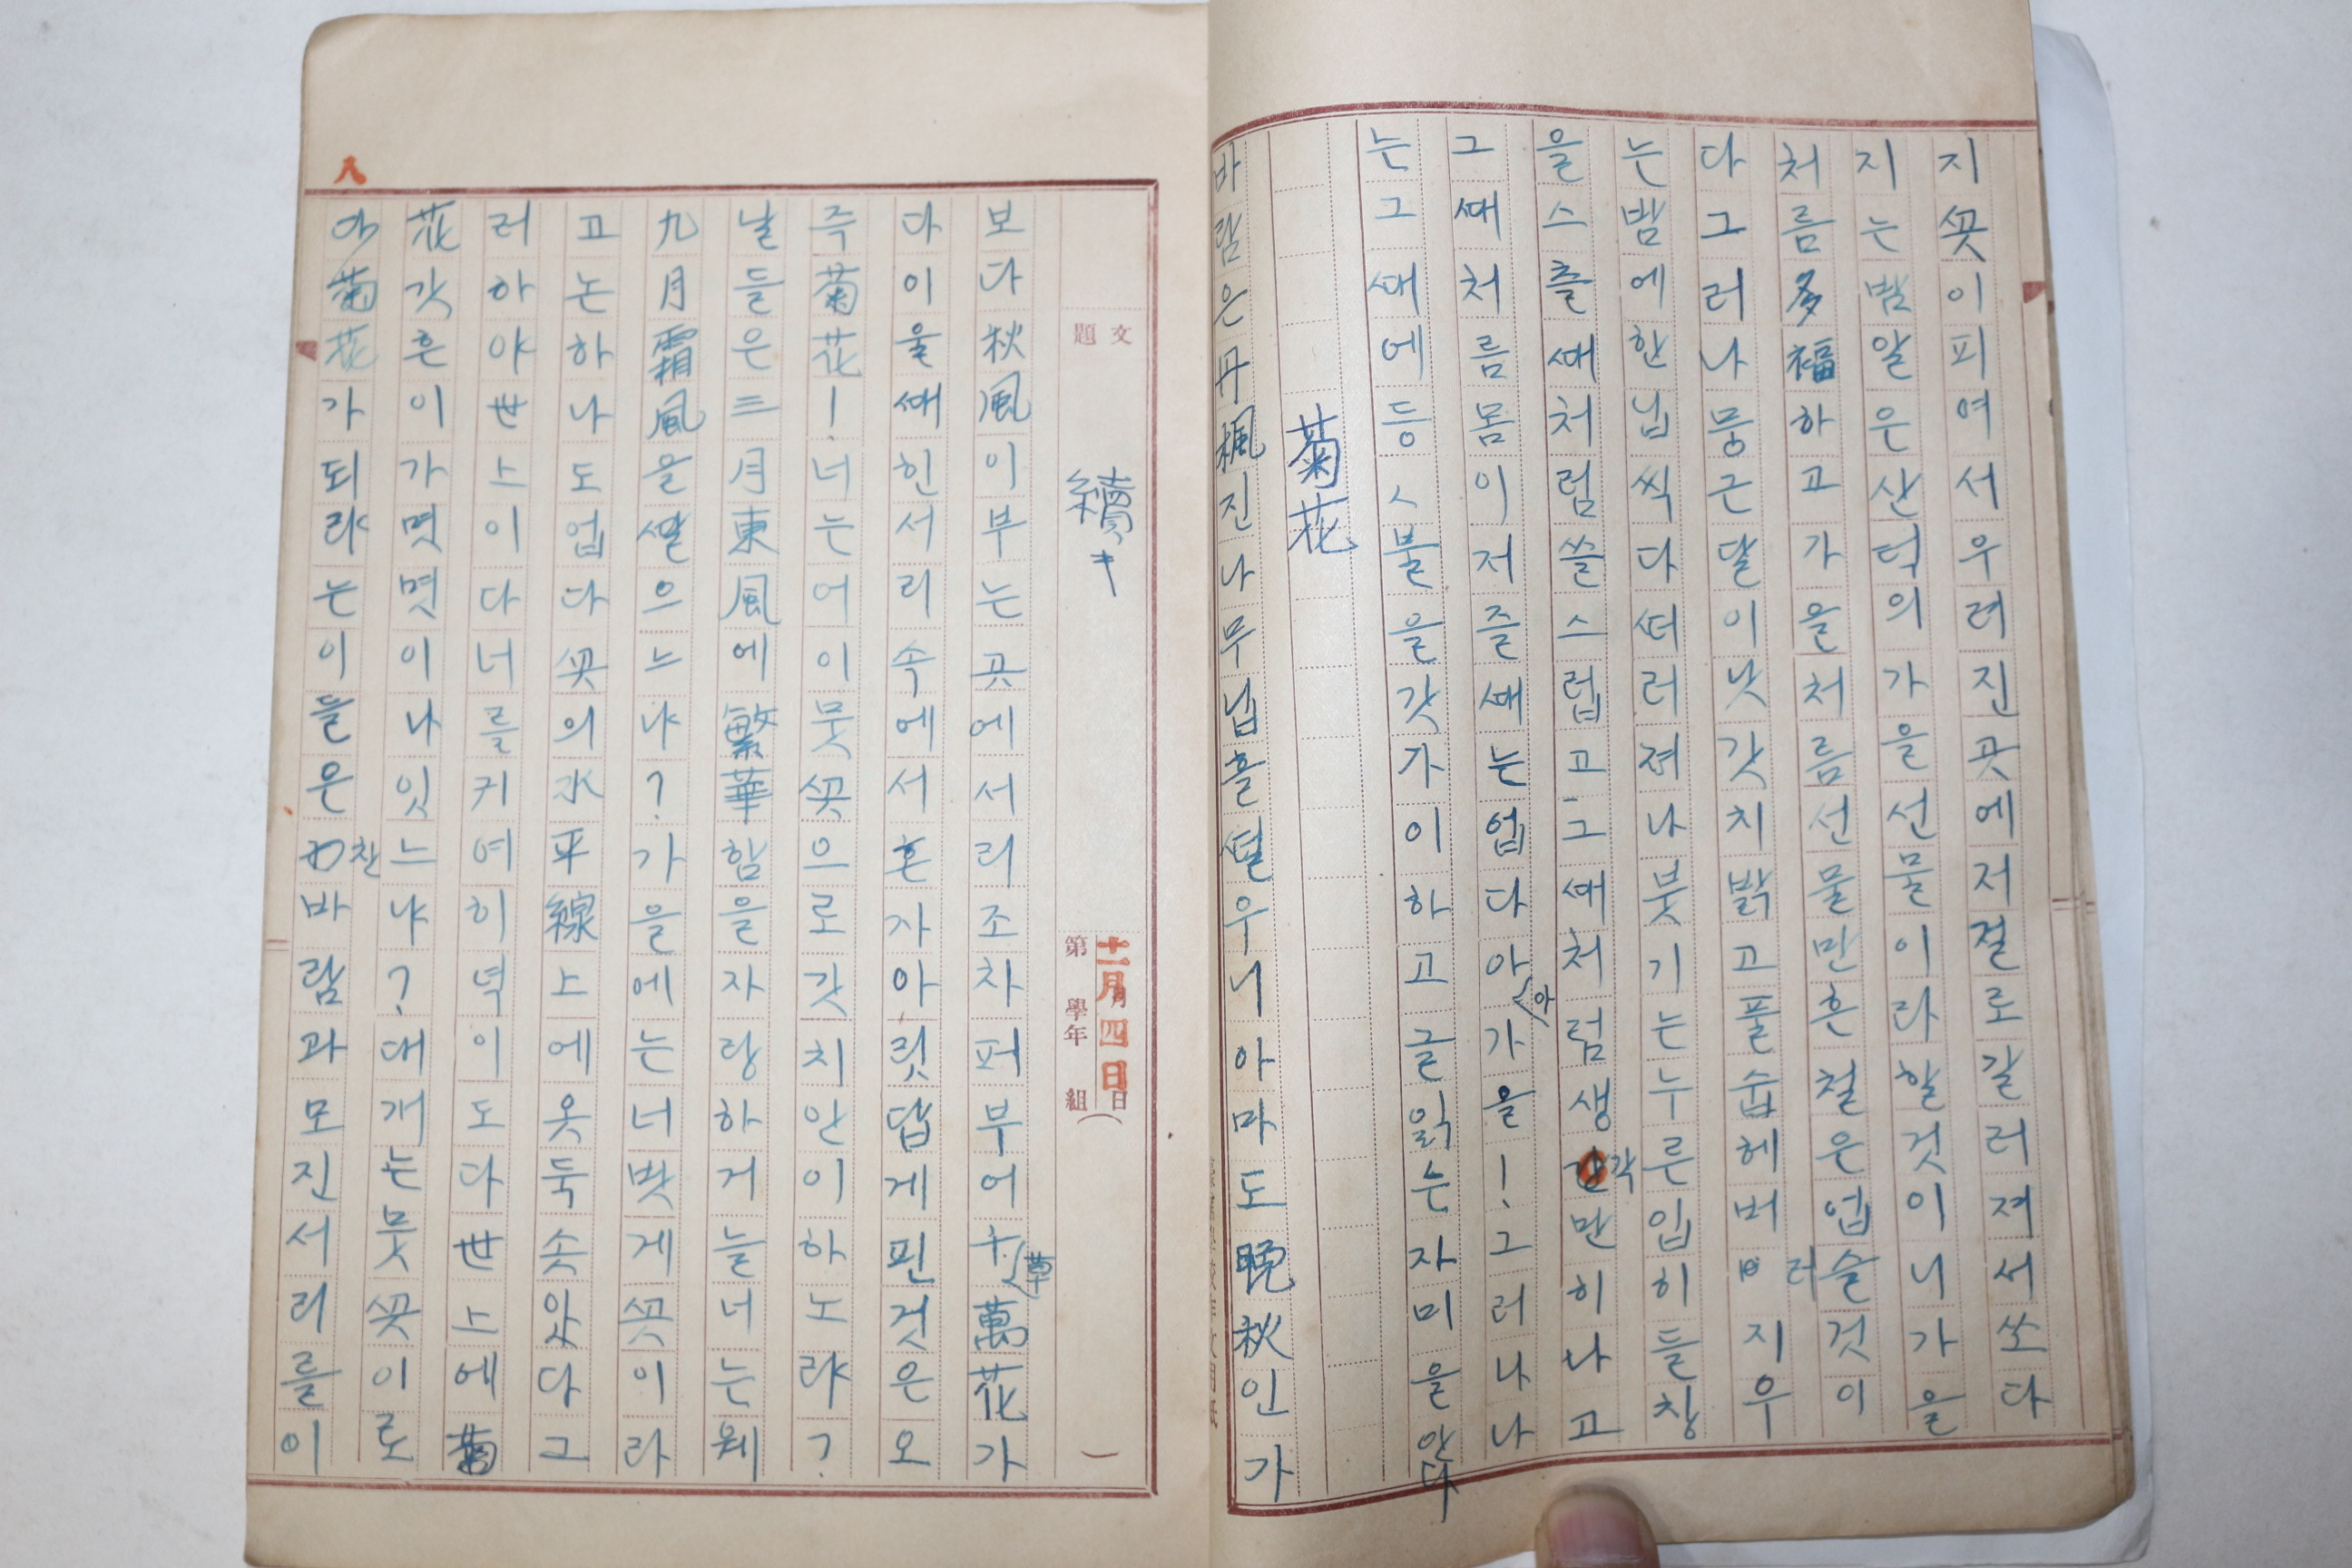 지ᄭᅩᆺ이피여서우려진곳에저절로갈러져서ᄯᅩ다
지는밤알은산턱의가을선물이라할것이니가을
처름多福하고가을처름선물만흔철은업슬것이
다그러나뭉근달이낫갓치밝고풀숩헤버러지우
는밤에한닙씩다ᄯᅥ러져나붓기는누른입히들창
을스츨ᄯᅢ처럼쓸스럽고그ᄯᅢ처럼생각만히나고
그ᄯᅢ처름몸이저즐ᄯᅢ는업다아아가을!그러나
는그ᄯᅢ에등ㅅ불을갓가이하고글읽는자미을안다
菊花
바람은丹楓진나무닙흘ᄯᅥᆯ우니아마도晩秋인가
文題
續キ
十二月四日
第 學年 組
( )
보다秋風이부는곳에서리조차퍼부어千草萬花가
다이울ᄯᅢ힌서리속에서혼자아릿답게핀것은오
즉菊花!너는어이뭇ᄭᅩᆺ으로갓치안이하노랴?
날들은三月東風에繁華함을자랑하거늘너는웨
九月霜風을ᄯᅡᆯ으느냐?가을에는너밧게ᄭᅩᆺ이라
고는하나도업다ᄭᅩᆺ의水平線上에옷둑솟앗다그
러하야世上이다너를귀여히녁이도다世上에菊
花갓흔이가몃몃이나잇느냐?대개는뭇ᄭᅩᆺ이로
다菊花가되랴는이들은찬바람과모진서리를이
八